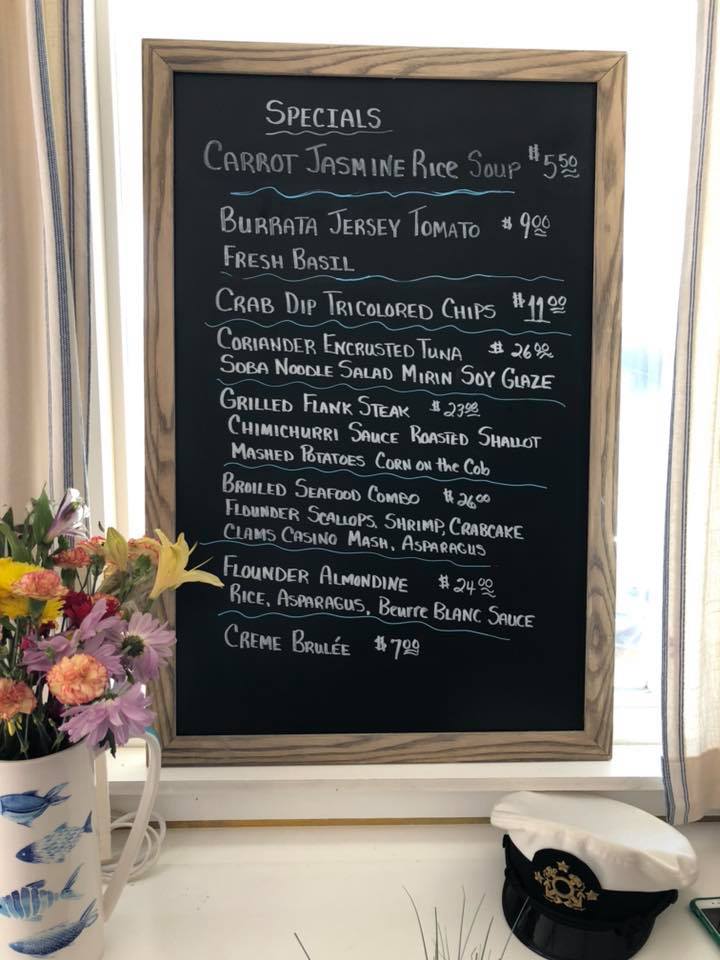 SPECIALS
CARROT JASMINE RICE SOUP $5.50
BURRATA JERSEY TOMATO $9.00
FRESH BASIL
CRAB DIP TRICOLORED CHIPS $11.00
CORIANDER ENCRUSTED TUNA $26.00
SOBA NOODLE SALAD MIRIN SOY GLAZE
GRILLED FLANK STEAK $23.00
CHIMICHURRI SAUCE ROASTED SHALLOT
MASHED POTATOES CORN ON THE COB
BROILED SEAFOOD COMBO $26.00
FLOUNDER SCALLOPS, SHRIMP, CRABCAKE
CLAMS CASINO MASH, ASPARAGUS
FLOUNDER ALMONDINE $24.00
RICE, ASPARAGUS, BEURRE BLANC SAUCE
CREME BRULÉE $7.00